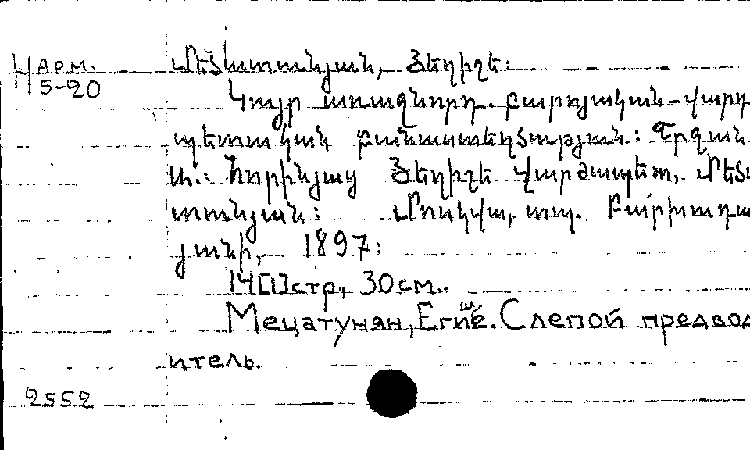 Чарм.
5-20
Մեծատունյան, Եղիշե:
Կույր առաջնորդ. բարոյական-վարդ
պետական բանաստեղծություն: Շրջան
Ա.: Յօրինյաց Եղիշե վարժապետ, Մեծա
տունյան: Մոսկվա, տպ. Բարխուդա
յանի, 1897:
14[1]стр., 30см..
Мецатунян, Егише. Слепой предвод
итель.
2552